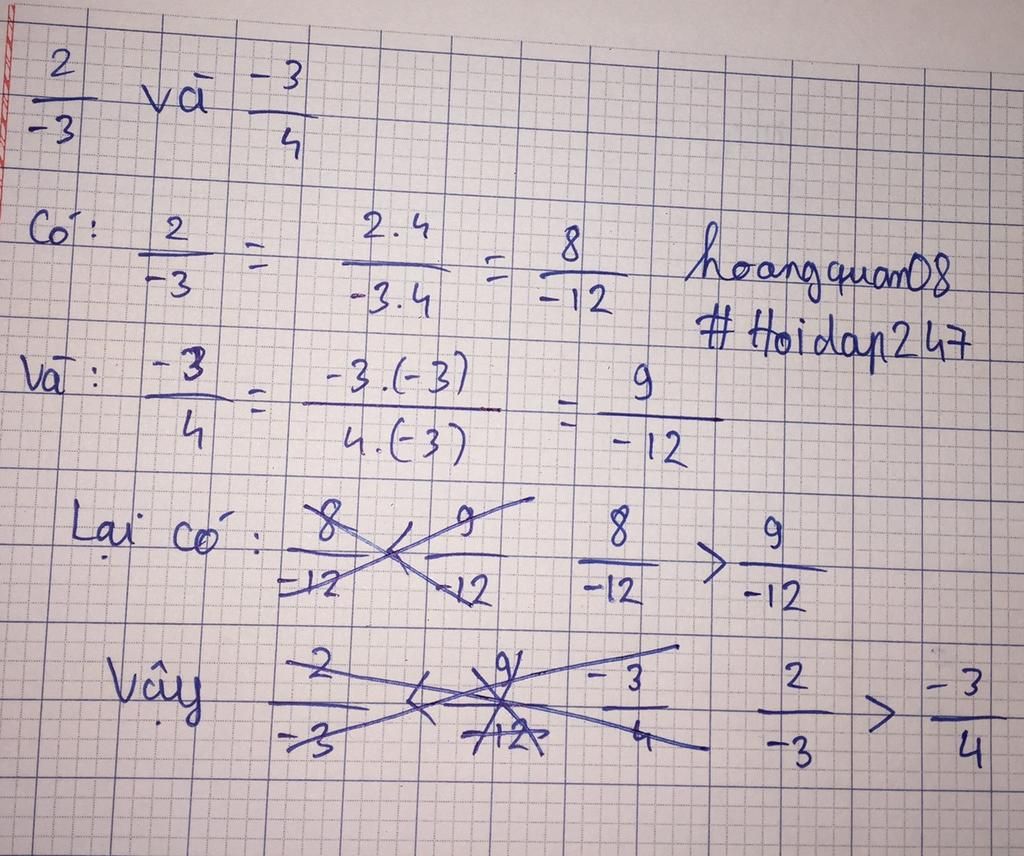 2/-3 và -3/4
Có: 2/-3 = 2.4/-3.4 = 8/-12
hoangquan08
#Hoidap247
Và: -3/4 = -3.(-3)/4.(-3) = 9/-12
Lại có: 8/-12 < 9/-12 8/-12 > 9/-12
Vậy 2/-3 < 9/-12 -3/4 2/-3 > -3/4